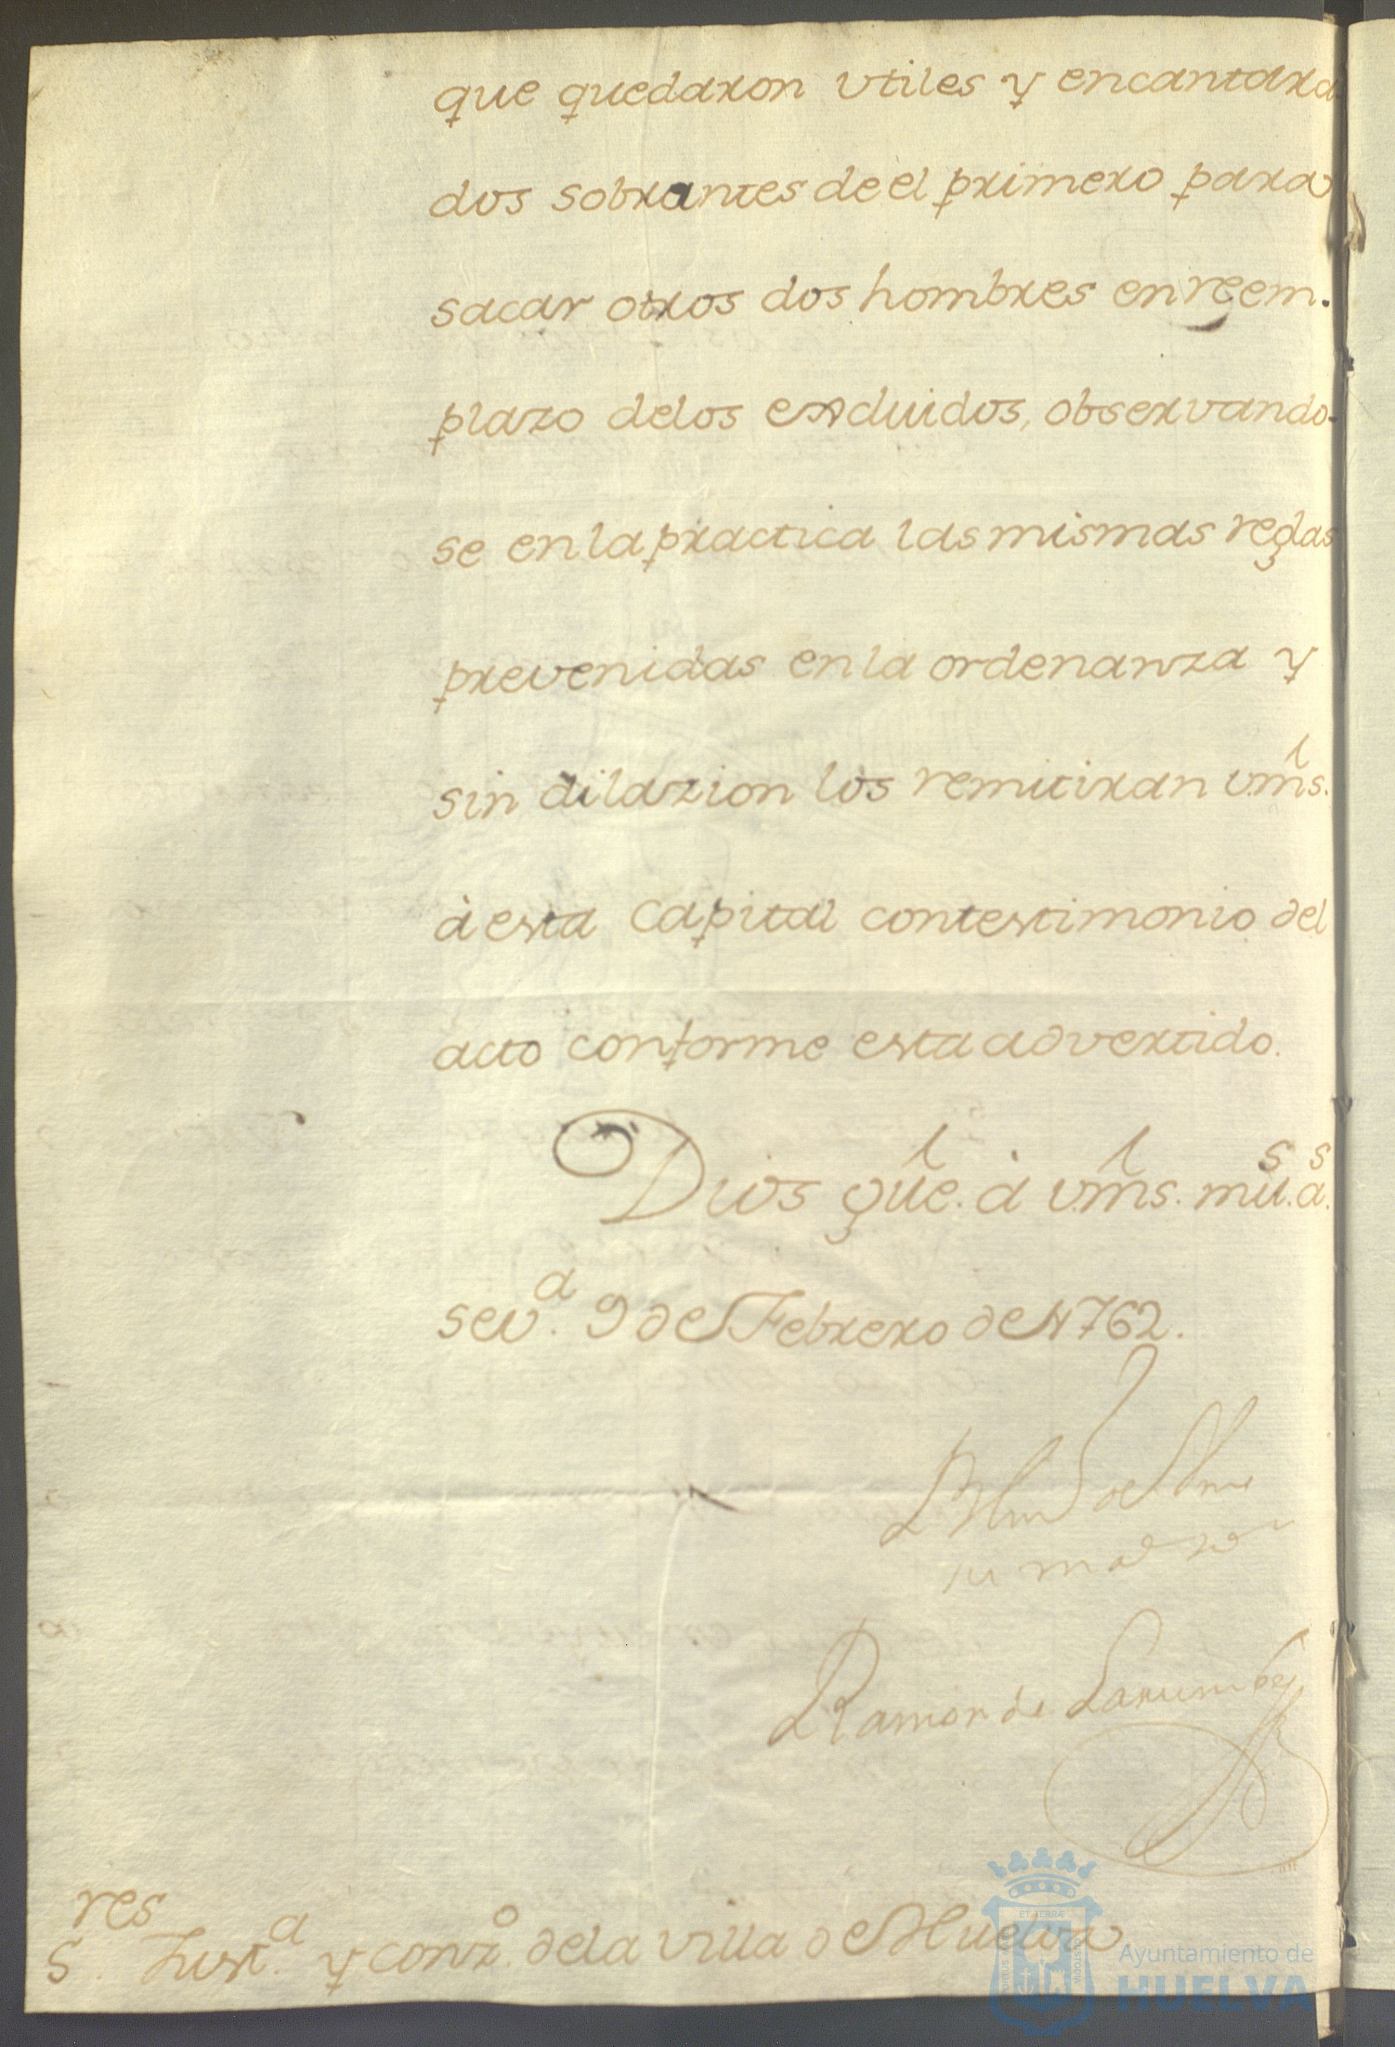 que quedaron utiles y encantara
dos sobrantes de el primero para
sacar otros dos hombres en reem.
plazo delos excluidos, observando-
se en la practica las mismas reglas
prevenidas en la ordenanza y
sin dilazion los remitiran vms.
à esta Capital con testimonio del
acto conforme esta advertido.
Dios gue. à vms. mu.s a.s
sev.a 9 de Febrero de 1762.
Ramon de Larumbe
S.res Just.a y conz.o de la villa de Huelva
Ayuntamiento de
HUELVA